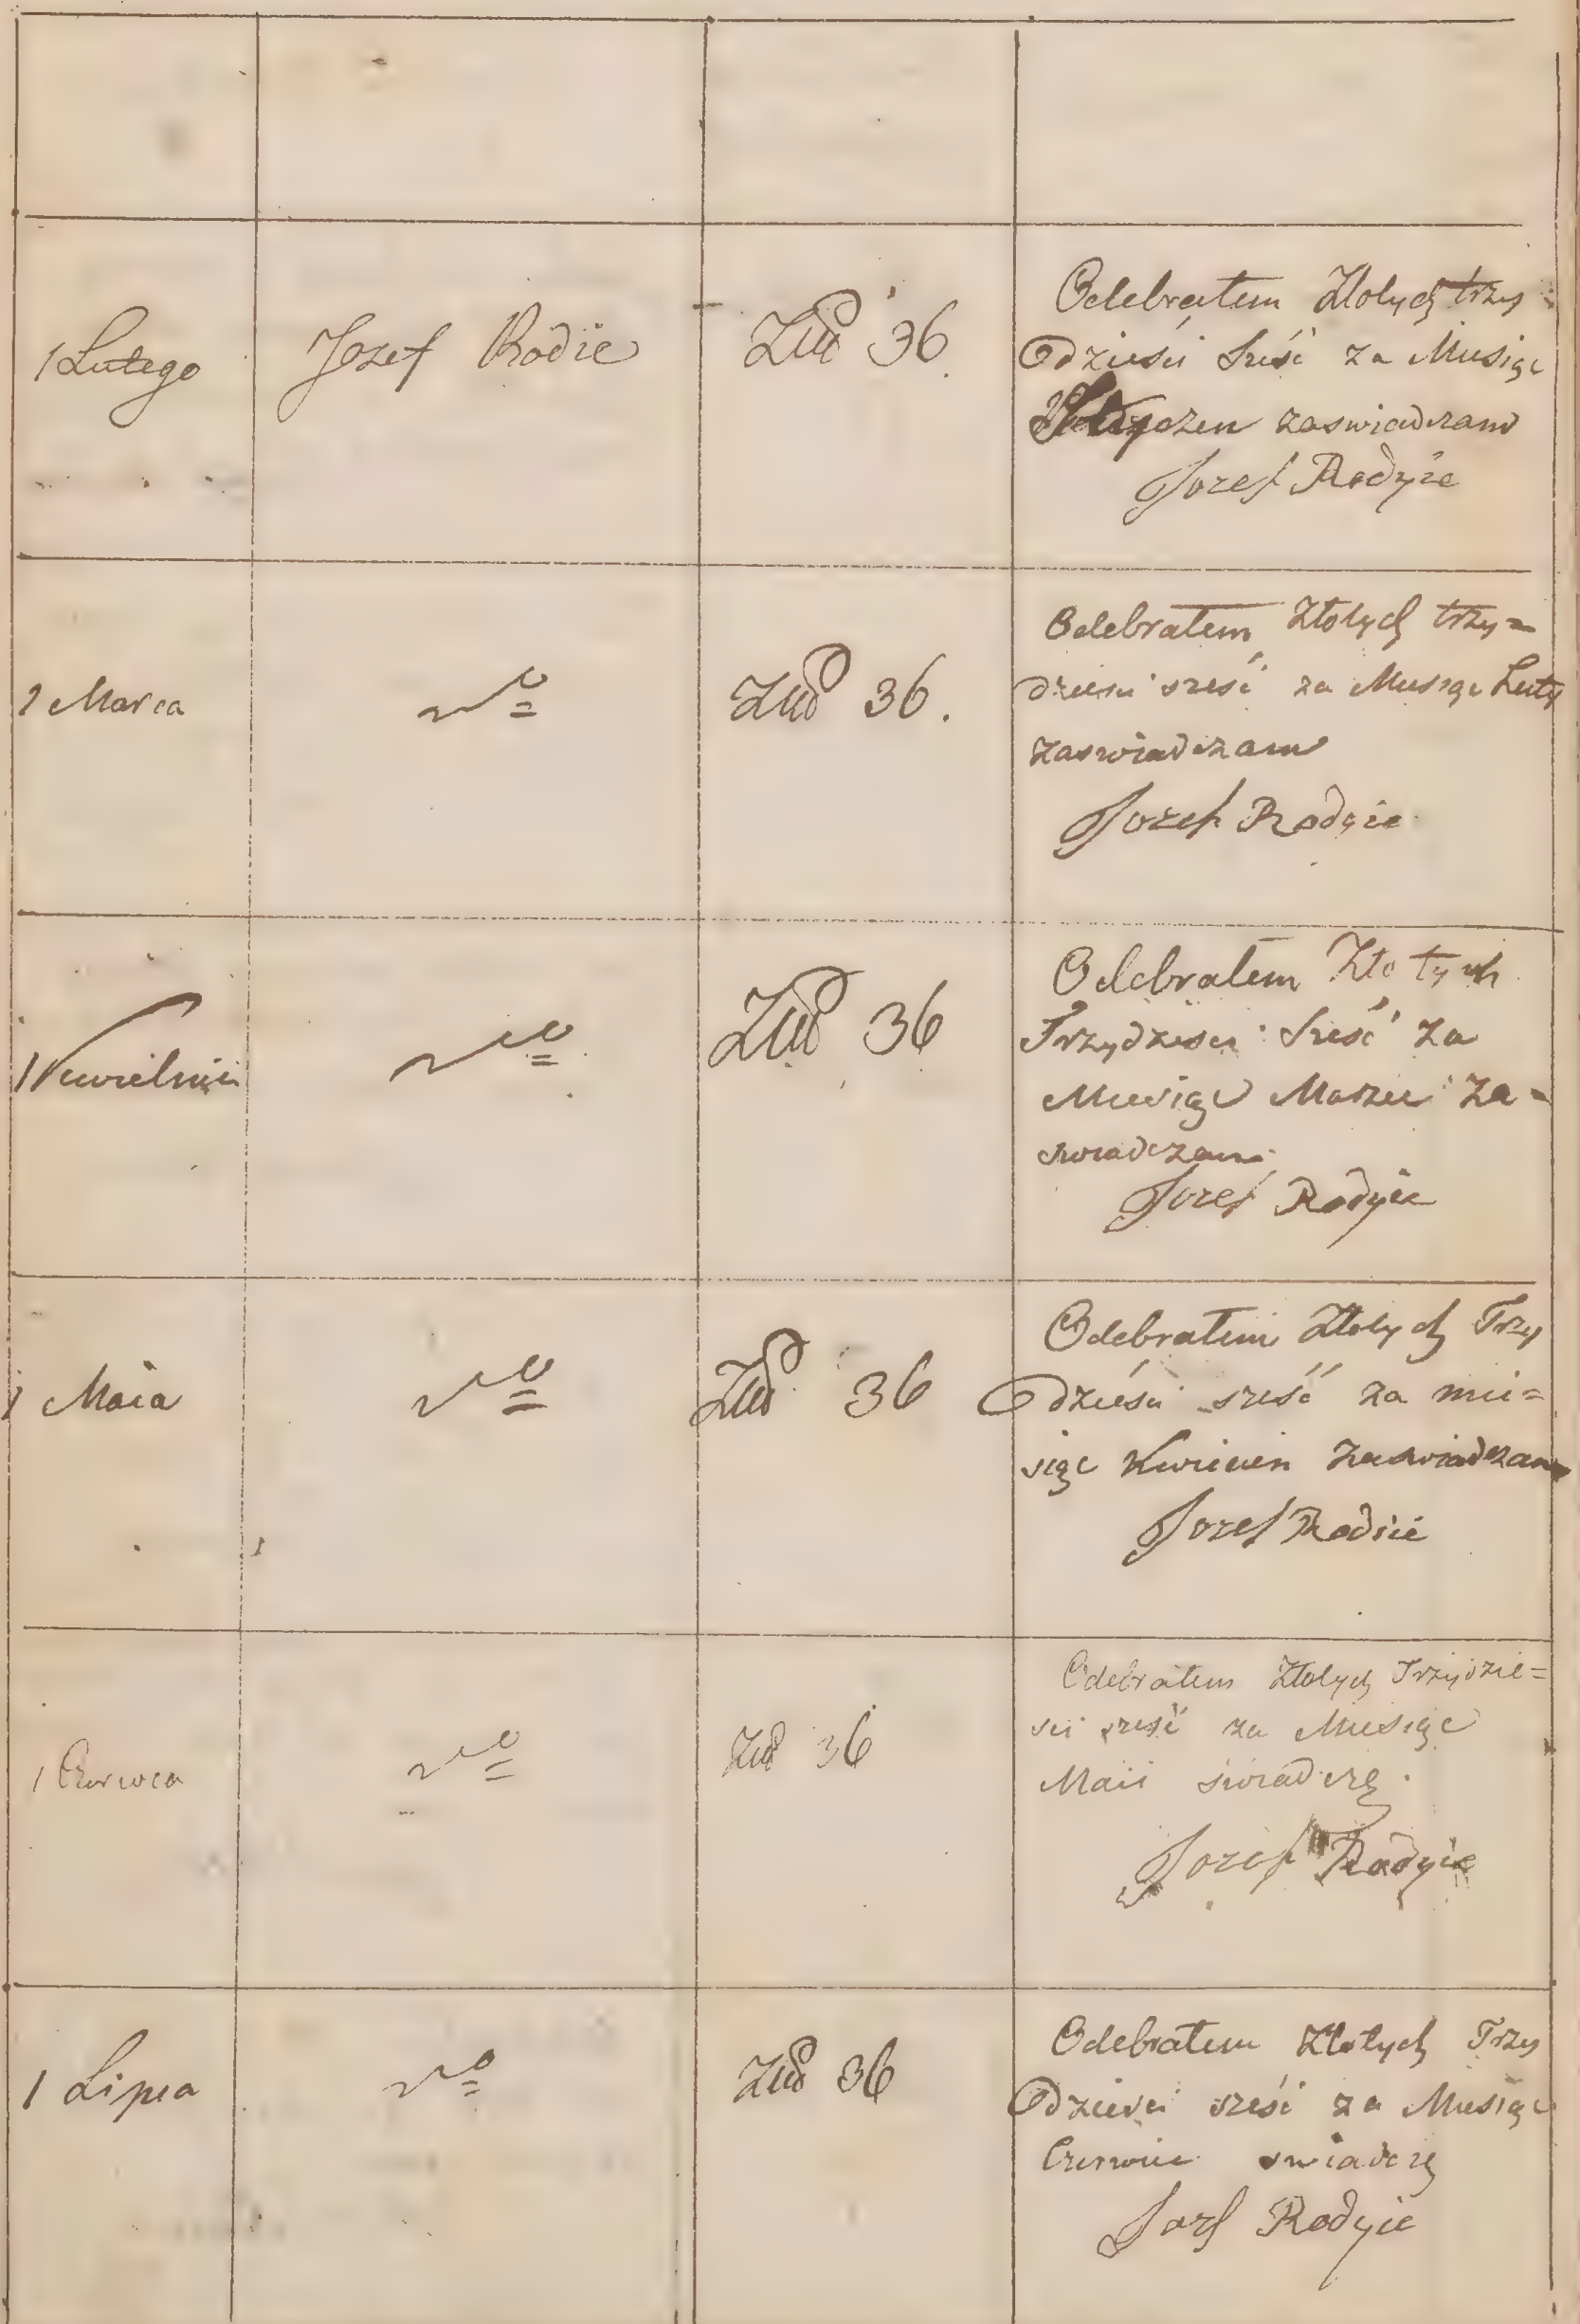 1 Lutego
Jozef Rodie
36
Odebrałem Złotych trzy
dzieści sześć za Miesiąc
zaswiadczam
Jozef Rodyie
1 Marca
36.
Odebrałem Złotych trzy=
dziesci sześć za Miesiąc Luty
zaswiadczam
Jozef Rodyie
1 Kwietnia
36
Odebrałem Złotych
Trzydziesci Sześć za
Miesiąc Marzec za-
swiadczam
Jozef Rodyie
1 Maia
36
Odebrałem Złotych Trzy
dzieści sześć za mie=
siąc Kwiecien zaswiadczam
Jozef Rodzie
1 Czerwca
36
Odebrałem Złotych Trzydzie=
sci sześć za Miesiąc
Maii świadczę.
Jozef Rodyie
1 Lipca
36
Odebrałem Złotych Trzy
dziesci sześć za Miesiąc
Czerwiec swiadczę
Jozf Rodyie